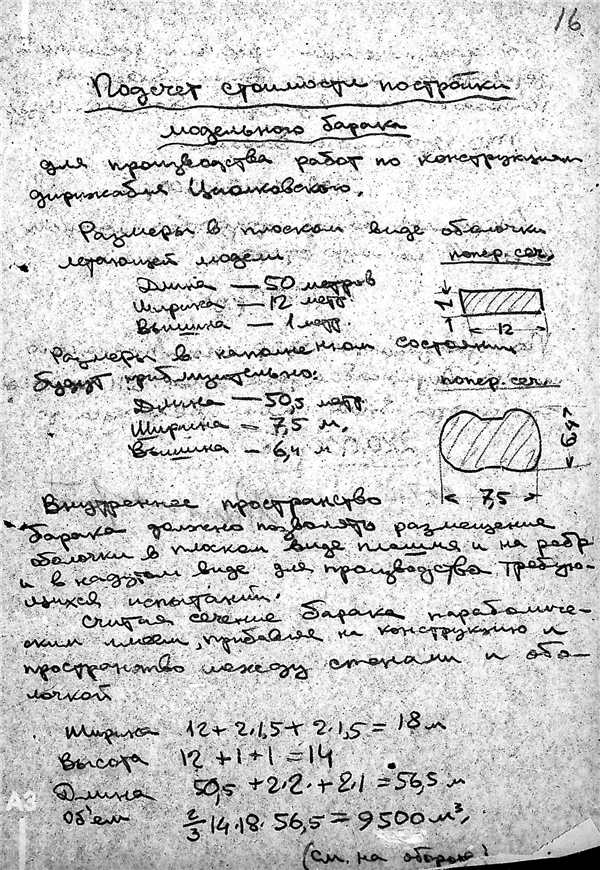 16
Подсчет стоимости постройки
модельного барака
для производства работ по конструкциям
дирижабля Циолковского.
Размеры в плоском виде оболочки
летающей модели
попер. сеч.
Длина — 50 метров
Ширина — 12 метр
Вышина — 1 метр.
1
12
Размеры в наполненном состоянии
будут приблизительно:
попер. сеч.
Длина — 50,5 метр
Ширина = 7,5 м.
Вышина — 6,4 м
6,4
7,5
Внутреннее пространство
барака должно позволять размещение
оболочки в плоском виде плашмя и на ребр
и в надутом виде для производства требую-
щихся испытаний.
Считая сечение барака параболиче-
ским имеем, прибавляя на конструкцию и
пространство между стенами и обо-
лочкой
Ширина 12 + 2·1,5 + 2·1,5 = 18 м
Высота 12 + 1 + 1 = 14
Длина 50,5 + 2·2 + 2·1 = 56,5 м
Объем 2/3 14·18·56,5 = 9500 м³.
(см. на обороте)
A3